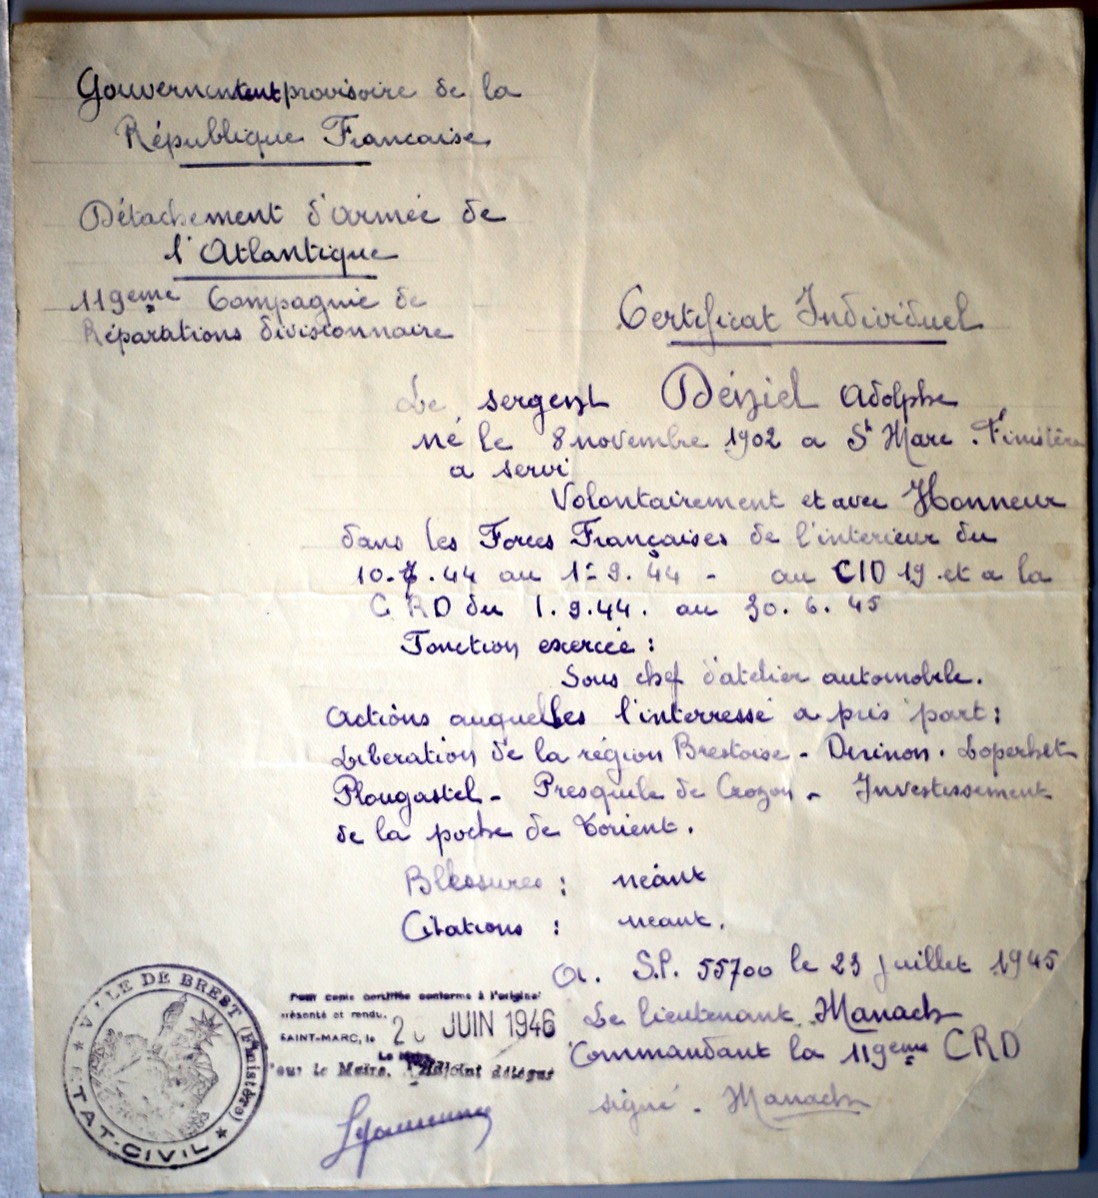 Gouvernement provisoire de la
République Francaise
Détachement d'armée de
l'Atlantique
119eme Compagnie de
Réparations divisionnaire
Certificat Individuel
Le sergent Déniel Adolphe
né le 8 novembre 1902 a St Marc. Finistère
a servi
Volontairement et avec Honneur
dans les Forces Françaises de l'interieur du
10.7.44 au 1-9.44 - au CID 19 et a la
C RD du 1.9.44. au 30.6.45
Fonction exercée :
Sous chef d'atelier automobile.
Actions auquelles l'interressé a pris part :
Liberation de la région Brestoise - Dirinon. Loperhet
Plougastel - Presquile de Crozon - Investissement
de la poche de Lorient.
Blessures : néant
Citations : neant.
A. S.P. 55700 le 23 juillet 1945
Le lieutenant Manach
Commandant la 119eme CRD
signé - Manach
Pour copie certifiée conforme à l'original
présenté et rendu.
SAINT-MARC, le 2 JUIN 1946
Le Maire
Pour le Maire, l'Adjoint délégué
VILLE DE BREST (Finistère)
ETAT-CIVIL